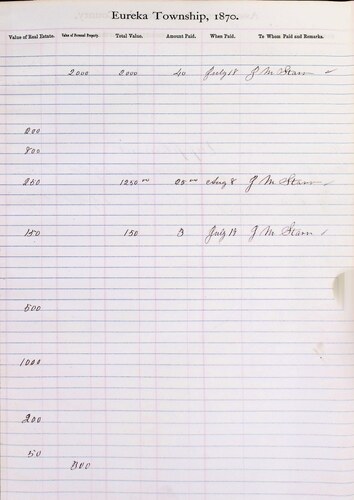 Eureka Township, 1870.
Value of Real Estate. Value of Personal Property. Total Value. Amount Paid. When Paid. To Whom Paid and Remarks.
2000 2000 40 July 18 J M Stearn ✓
200
800
250 1250 00 25 00 Aug 8 J M Stearn ✓
150 150 3 July 18 J M Stearn ✓
500
1000
200
50
300